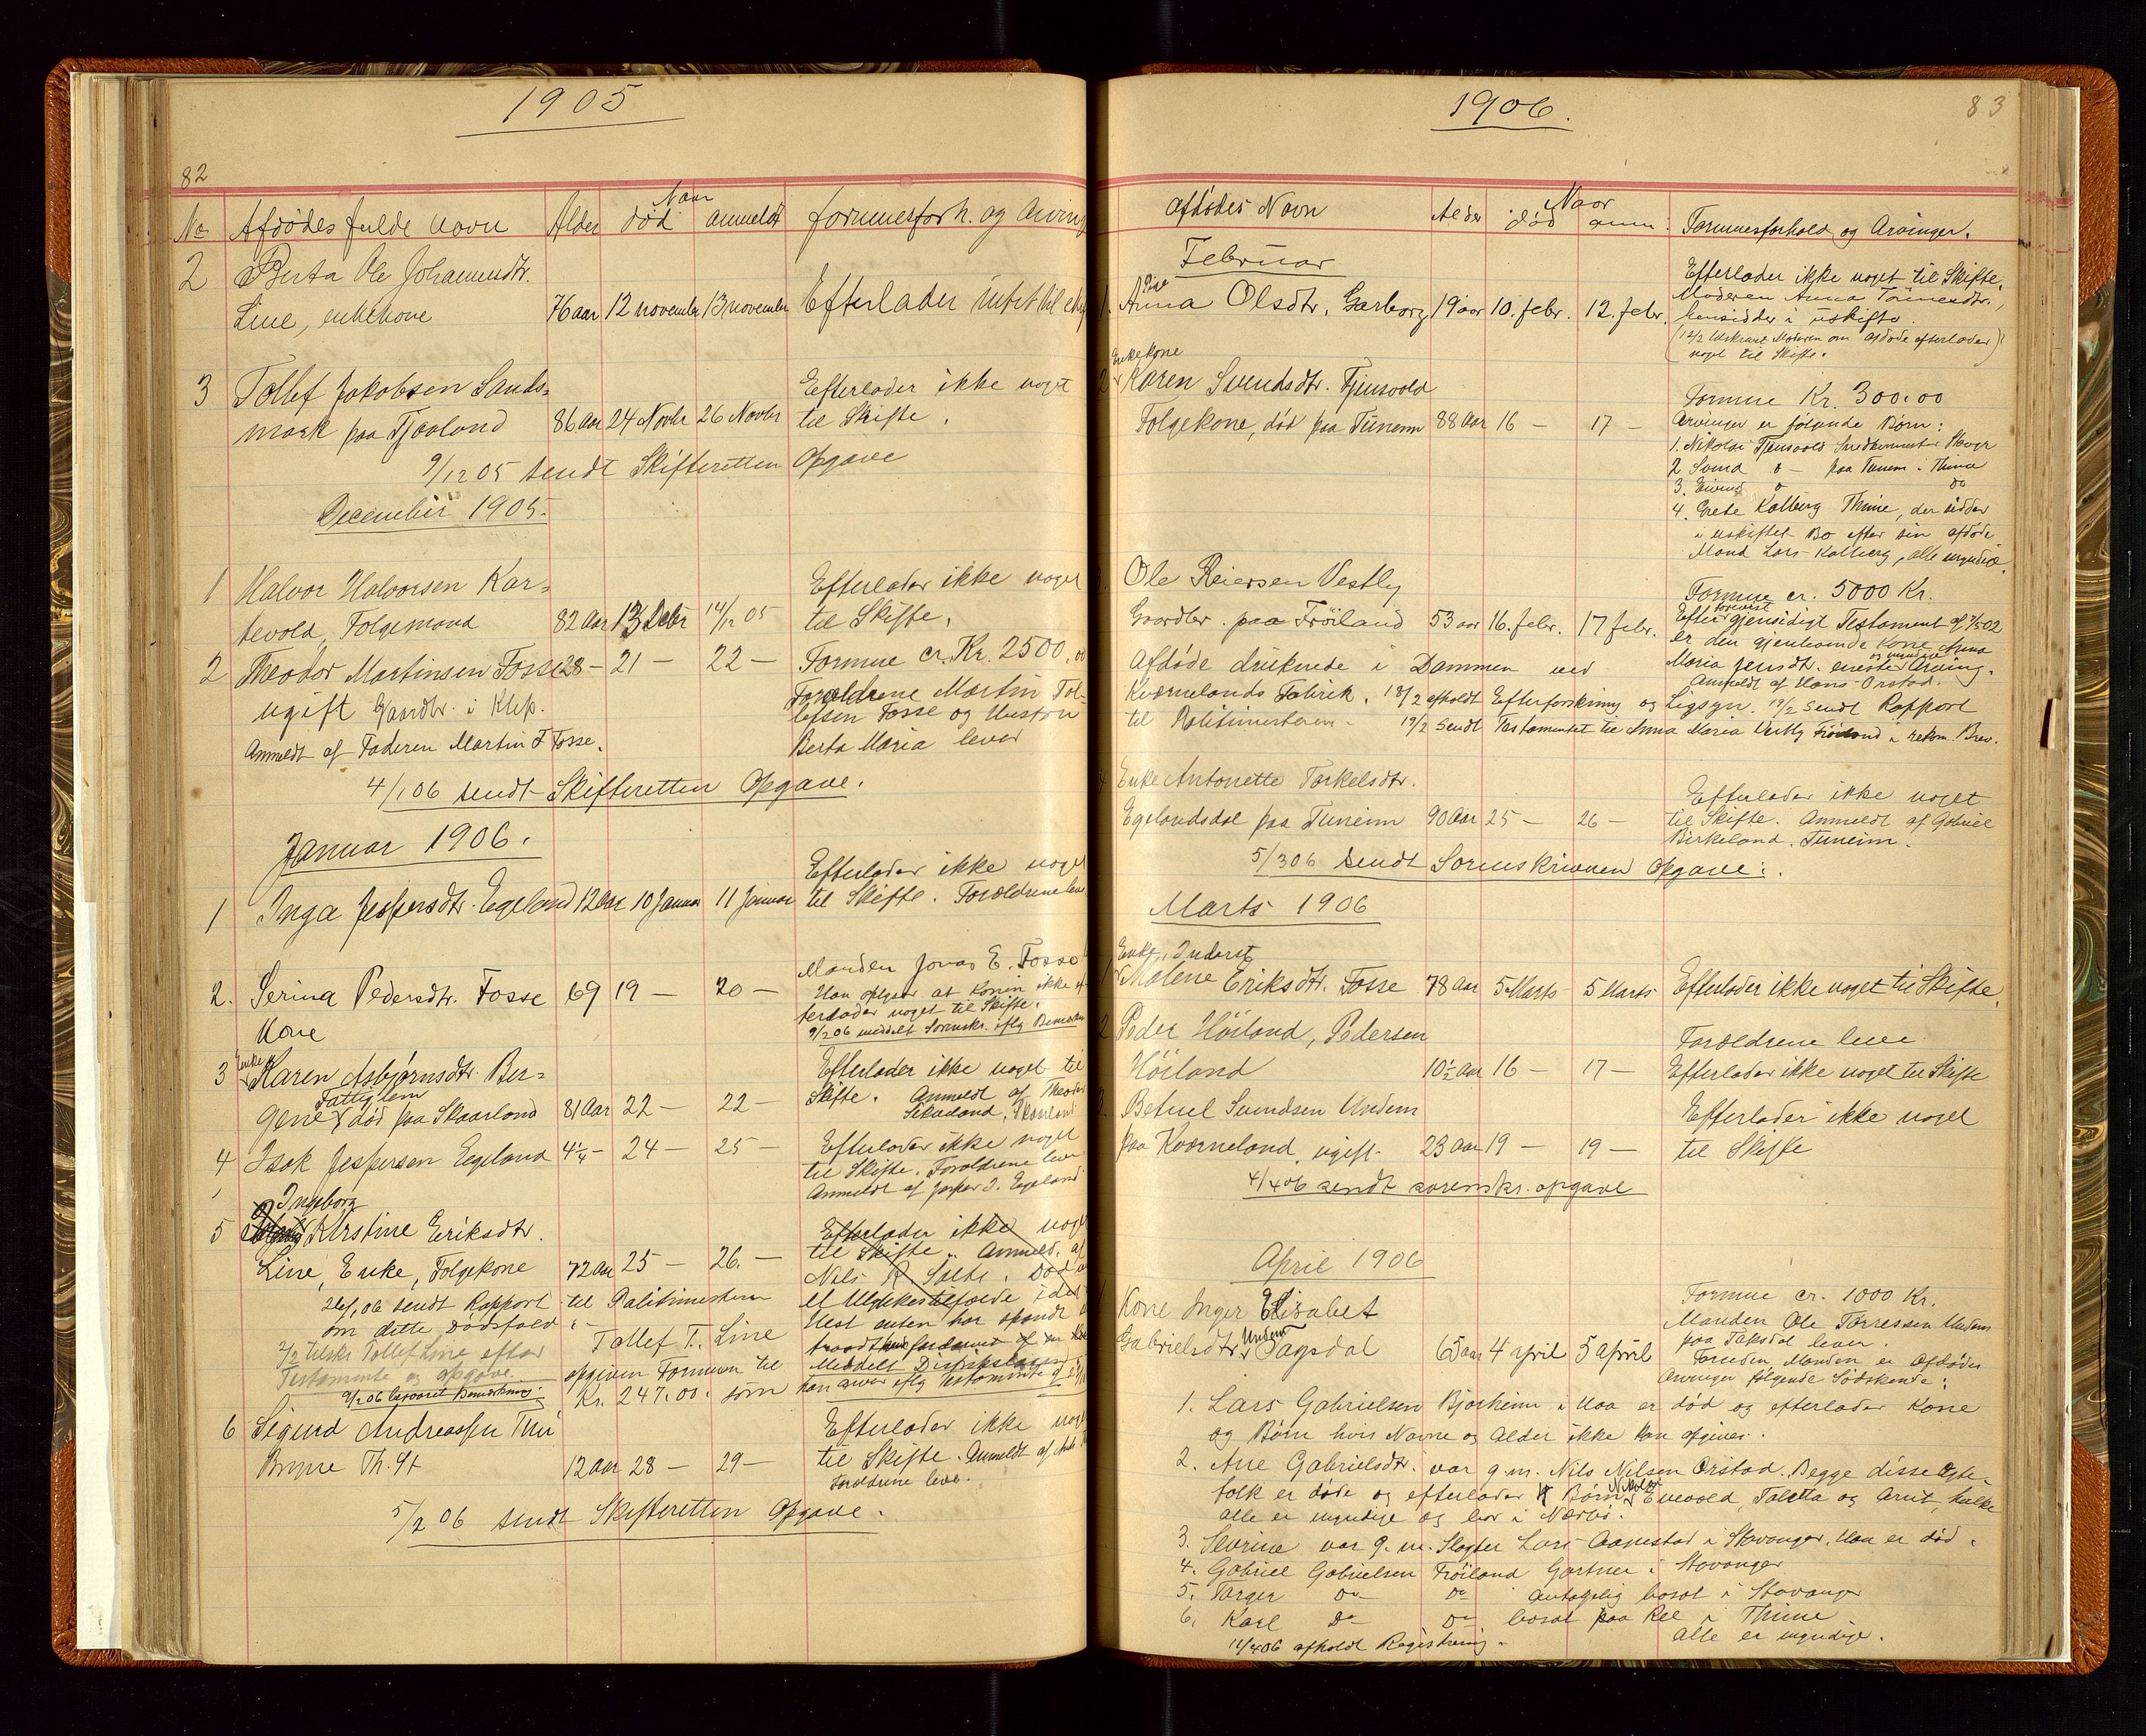 1905
82
No Afdødes fulde Navn Alder Naar død anmeldt formuesforh. og Arving
2 Berta Ole Johannesdtr.
Line, enkekone 76 aar 12 november 13 november Efterlader intet til
3 Tollef Jakobsen Sands- Efterlader ikke noget
mark paa Tjaaland 86 Aar 24 Novbr 26 Novbr til Skifte.
9/12 05 sendt Skifteretten Opgave
December 1905.
1 Halvor Halvorsen Kar- Efterlader ikke noget
tevold, Folgemand 82 Aar 13 Debr 14/12 05 til Skifte.
2 Theodor Martinsen Fosse 28 – 21 – 22 – Formue cr. Kr. 2500.
ugift Gaardbr. i Klep. Forældrene Martin Tol-
lefsen Fosse og Hustru
Anmeldt af Faderen Martin T Fosse. Berta Maria lever
4/1 06 sendt Skifteretten Opgave.
Januar 1906.
Efterlader ikke noget
1 Inga Jespersdtr. Egeland 12 Aar 10 Januar 11 Januar til Skifte. Forældrene leve
Manden Jonas E. Fosse
2. Serina Pedersdtr. Fosse 69 19 – 20 – Han opgav at Konen ikke ef-
terlader noget til Skifte.
Kone 9/2 06 meddelt Sorenskr. iflg
3 Enke Karen Asbjørnsdtr. Ber- Efterlader ikke noget til
Fattiglem Skifte. Anmeldt af Theodor
gene død paa Skaarland 81 Aar 22 – 22 – Skaarland
4 Isak Jespersen Egeland 4¼ – 24 – 25 – Efterlader ikke noget
til Skifte. Forældrene leve
Anmeldt af Jesper I. Egeland
Ingeborg
5 Kirstine Eriksdtr. Efterlader ikke noget
til Skifte. Anmeld. af
Line, Enke, Folgekone 72 Aar 25 – 26. – Nils R Salte. Død
26/1 06 sendt Rapport til Politimesteren et Ulykkestilfælde idet
om dette Dødsfald Hest enten har spændt
2/2 tilskr. Tollef Line efter Tollef T. Line
Testamente og opgave. opgiver Formuen til
9/2 06 besvaret Bemærkning. Kr. 247.00. som han arver iflg Testamente af
6 Sigurd Andreassen Efterlader ikke noget
Bryne Th. St 12 Aar 28 – 29 – til Skifte. Anmeldt af
Forældrene leve.
5/2 06 sendt Skifteretten Opgave.
1906.
83
Afdødes Navn Alder Naar død anm. Formuesforhold og Arvinger.
Februar
Efterlader ikke noget til Skifte.
Pige Moderen Anna
1. Anna Olsdtr. Garborg 19 aar 10. febr. 12. febr. hensidder i uskifte.
(12/2 tilskrevet Moderen om Afdøde efterlader
noget til Skifte.)
Enkekone
2 Karen Svendsdtr. Tjensvold Formue Kr. 300.00
Folgekone, død paa Tuneim 88 Aar 16 – 17 – Arvinger er følgende Børn:
1. Nikolai Tjensvold Snedkermester Stavgr
2 Svend do – paa Tunem i Thime
3. Eivind do do
4. Grete Kalberg Thime, der sidder
i uskiftet Bo efter sin afdøde
Mand Lars Kalberg, alle myndige.
3. Ole Reiersen Vestly Formue cr. 5000 Kr.
Gaardbr. paa Frøiland 53 aar 16. febr. 17 febr. Efter forevist gjensidigt Testament af 7/5 02
er den gjenlevende Kone Anna
Afdøde druknede i Dammen ved Maria Jensdtr. eneste og myndige Arving.
Anmeldt af Hans Orstad.
Kværnelands Fabrik. 18/2 afholdt Efterforskning og Ligsyn. 19/2 sendt Rapport
til Politimesteren. 19/2 sendt Testamentet til Anna Maria Vestly Frøiland i rekom. Brev.
4 Enke Antonette Torkelsdtr. Efterlader ikke noget
Egelandsdal paa Tuneim 90 Aar 25 – 26 – til Skifte. Anmeldt af Gabriel
Birkeland, Tuneim.
5/3 06 sendt Sorenskriveren Opgave.
Marts 1906
Enke, Inderst
1 Malene Eriksdtr. Fosse 78 Aar 5 Marts 5 Marts Efterlader ikke noget til Skifte.
2 Peder Høiland, Pedersen Forældrene leve
Høiland 10½ Aar 16 – 17 – Efterlader ikke noget til Skifte
3. Betuel Svendsen Undem Efterlader ikke noget
paa Kværneland, ugift 23 Aar 19 – 19 – til Skifte
4/4 06 sendt sorenskr. opgave
April 1906
Formue cr. 1000 Kr.
1 Kone Inger Elisabet Manden Ole Torressen Undem
Gabrielsdtr. Undem Tagsdal 65 aar 4 april 5 april paa Taksdal lever.
Foruden Manden er Afdødes
Arvinger følgende Sødskende:
1. Lars Gabrielsen Bjorheim i Haa er død og efterlader Kone
og Børn hvis Navne og Alder ikke kan opgives.
2. Ane Gabrielsdtr. var g.m. Nils Nilsen Orstad. Begge disse Ægte-
folk er døde og efterlader 4 Børn Nikolai Enevold, Taletta og Arnt, hvilke
alle er myndige og bor i Nærbø.
3. Severine var g.m. Slagter Lars Aanestad i Stavanger. Han er død.
4. Gabriel Gabrielsen Frøiland Gartner i Stavanger
5. Torger Do Do Antagelig bosat i Stavanger
6. Karl Do Do bosat paa Ree i Thime
Alle er myndige.
11/4 06 afholdt Registrering.